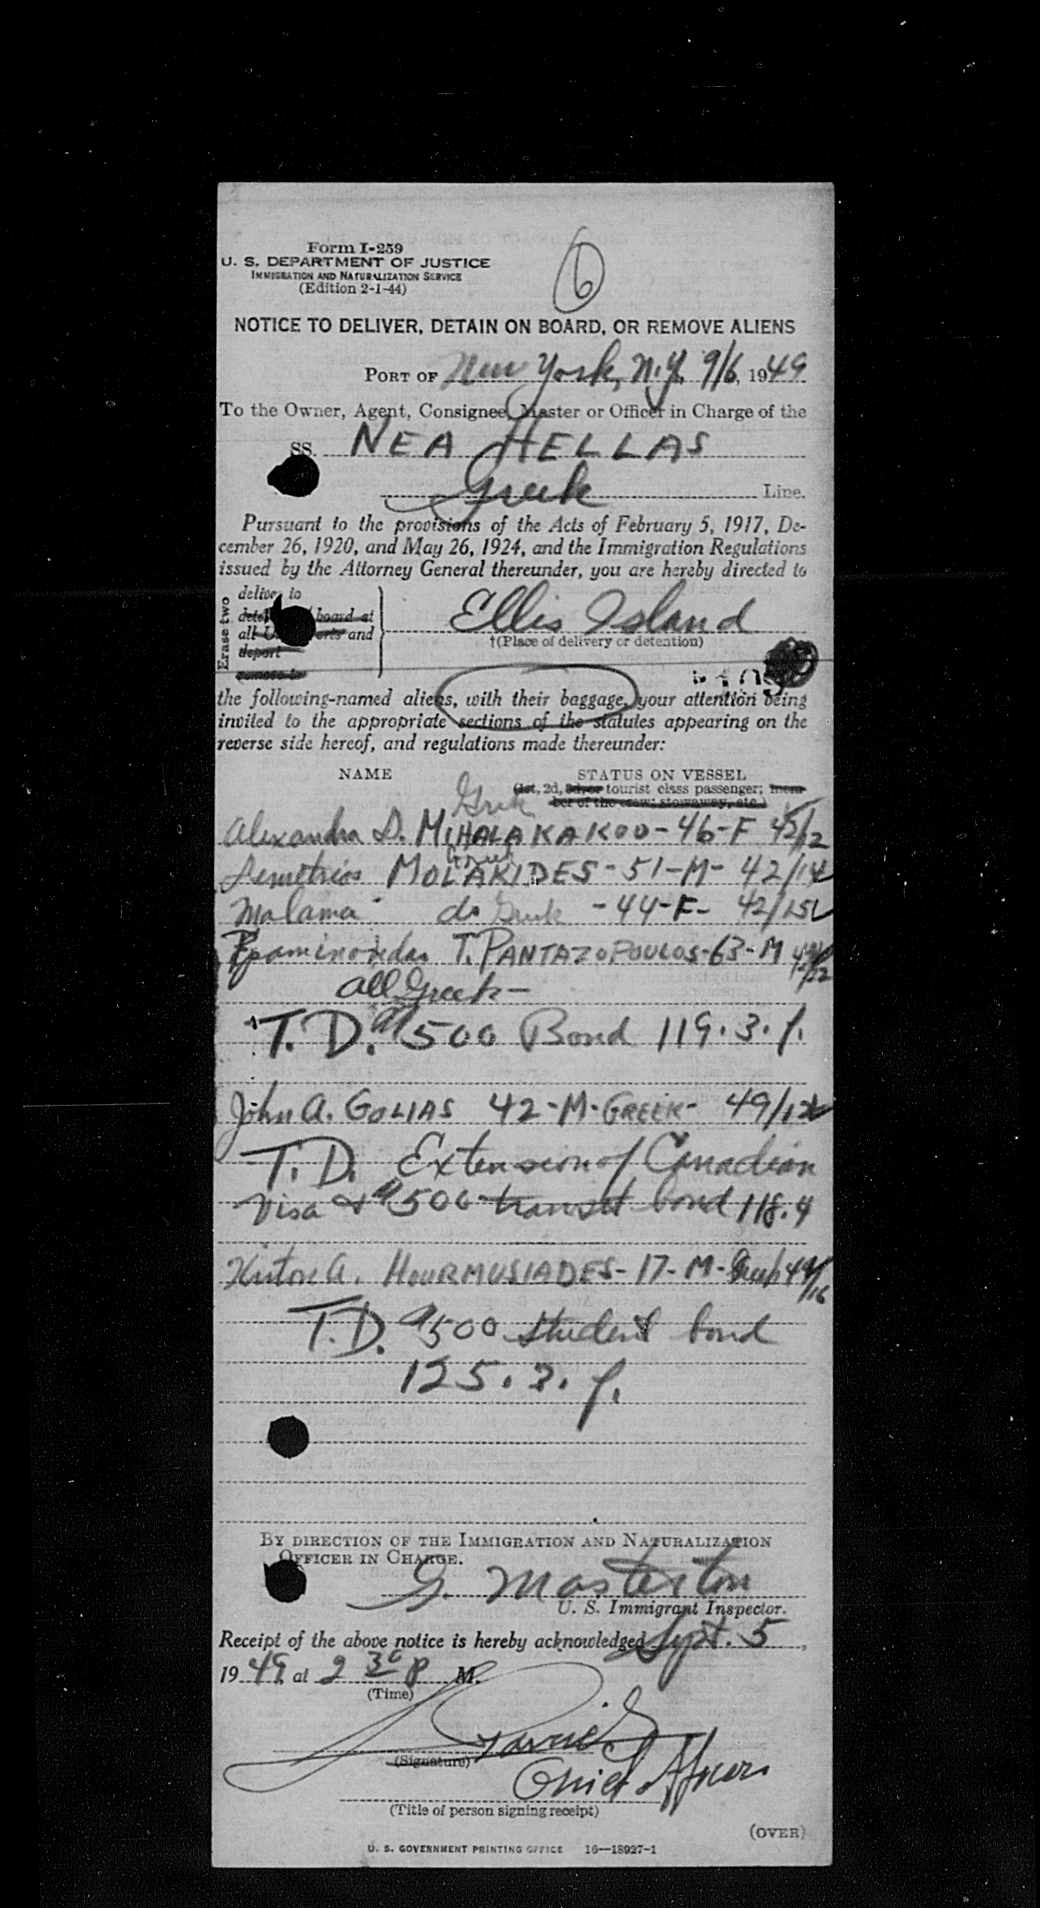 Form I-259
U. S. DEPARTMENT OF JUSTICE
IMMIGRATION AND NATURALIZATION SERVICE
(Edition 2-1-44)
6
NOTICE TO DELIVER, DETAIN ON BOARD, OR REMOVE ALIENS
PORT OF New York, N.Y. 9/6, 1949
To the Owner, Agent, Consignee, Master or Officer in Charge of the
SS. NEA HELLAS
Greek Line.
Pursuant to the provisions of the Acts of February 5, 1917, De-
cember 26, 1920, and May 26, 1924, and the Immigration Regulations
issued by the Attorney General thereunder, you are hereby directed to
Erase two
deliver to
board at
all and
deport
remove to
Ellis Island
†(Place of delivery or detention)
the following-named aliens, with their baggage, your attention being
invited to the appropriate sections of the statutes appearing on the
reverse side hereof, and regulations made thereunder:
NAME STATUS ON VESSEL
(1st, 2d, 3d, or tourist class passenger; mem-
ber of the crew; stowaway, etc.)
Greek
Alexandra D. MIHALAKAKOO - 46 - F 45/12
Greek
Demetrios MOLAKIDES - 51 - M - 42/14
Malama do Greek - 44 - F - 42/15
Epaminondas T. PANTAZOPOULOS - 63 - M
All Greek -
T. D. 500 Bond 119.3.f.
John A. GOLIAS 42 - M - GREEK - 49/12
T. D. Extension of Canadian
Visa & 500 transit bond 118.4
A. HOURMUSIADES - 17 - M - Greek 49/16
T. D. 500 student bond
125.3.f.
BY DIRECTION OF THE IMMIGRATION AND NATURALIZATION
OFFICER IN CHARGE.
G. Masterton
U. S. Immigrant Inspector.
Receipt of the above notice is hereby acknowledged Sept. 5,
1949 at 2 30 P M.
(Time)
(Signature)
Chief Officer
(Title of person signing receipt)
(OVER)
U. S. GOVERNMENT PRINTING OFFICE 16—18927-1